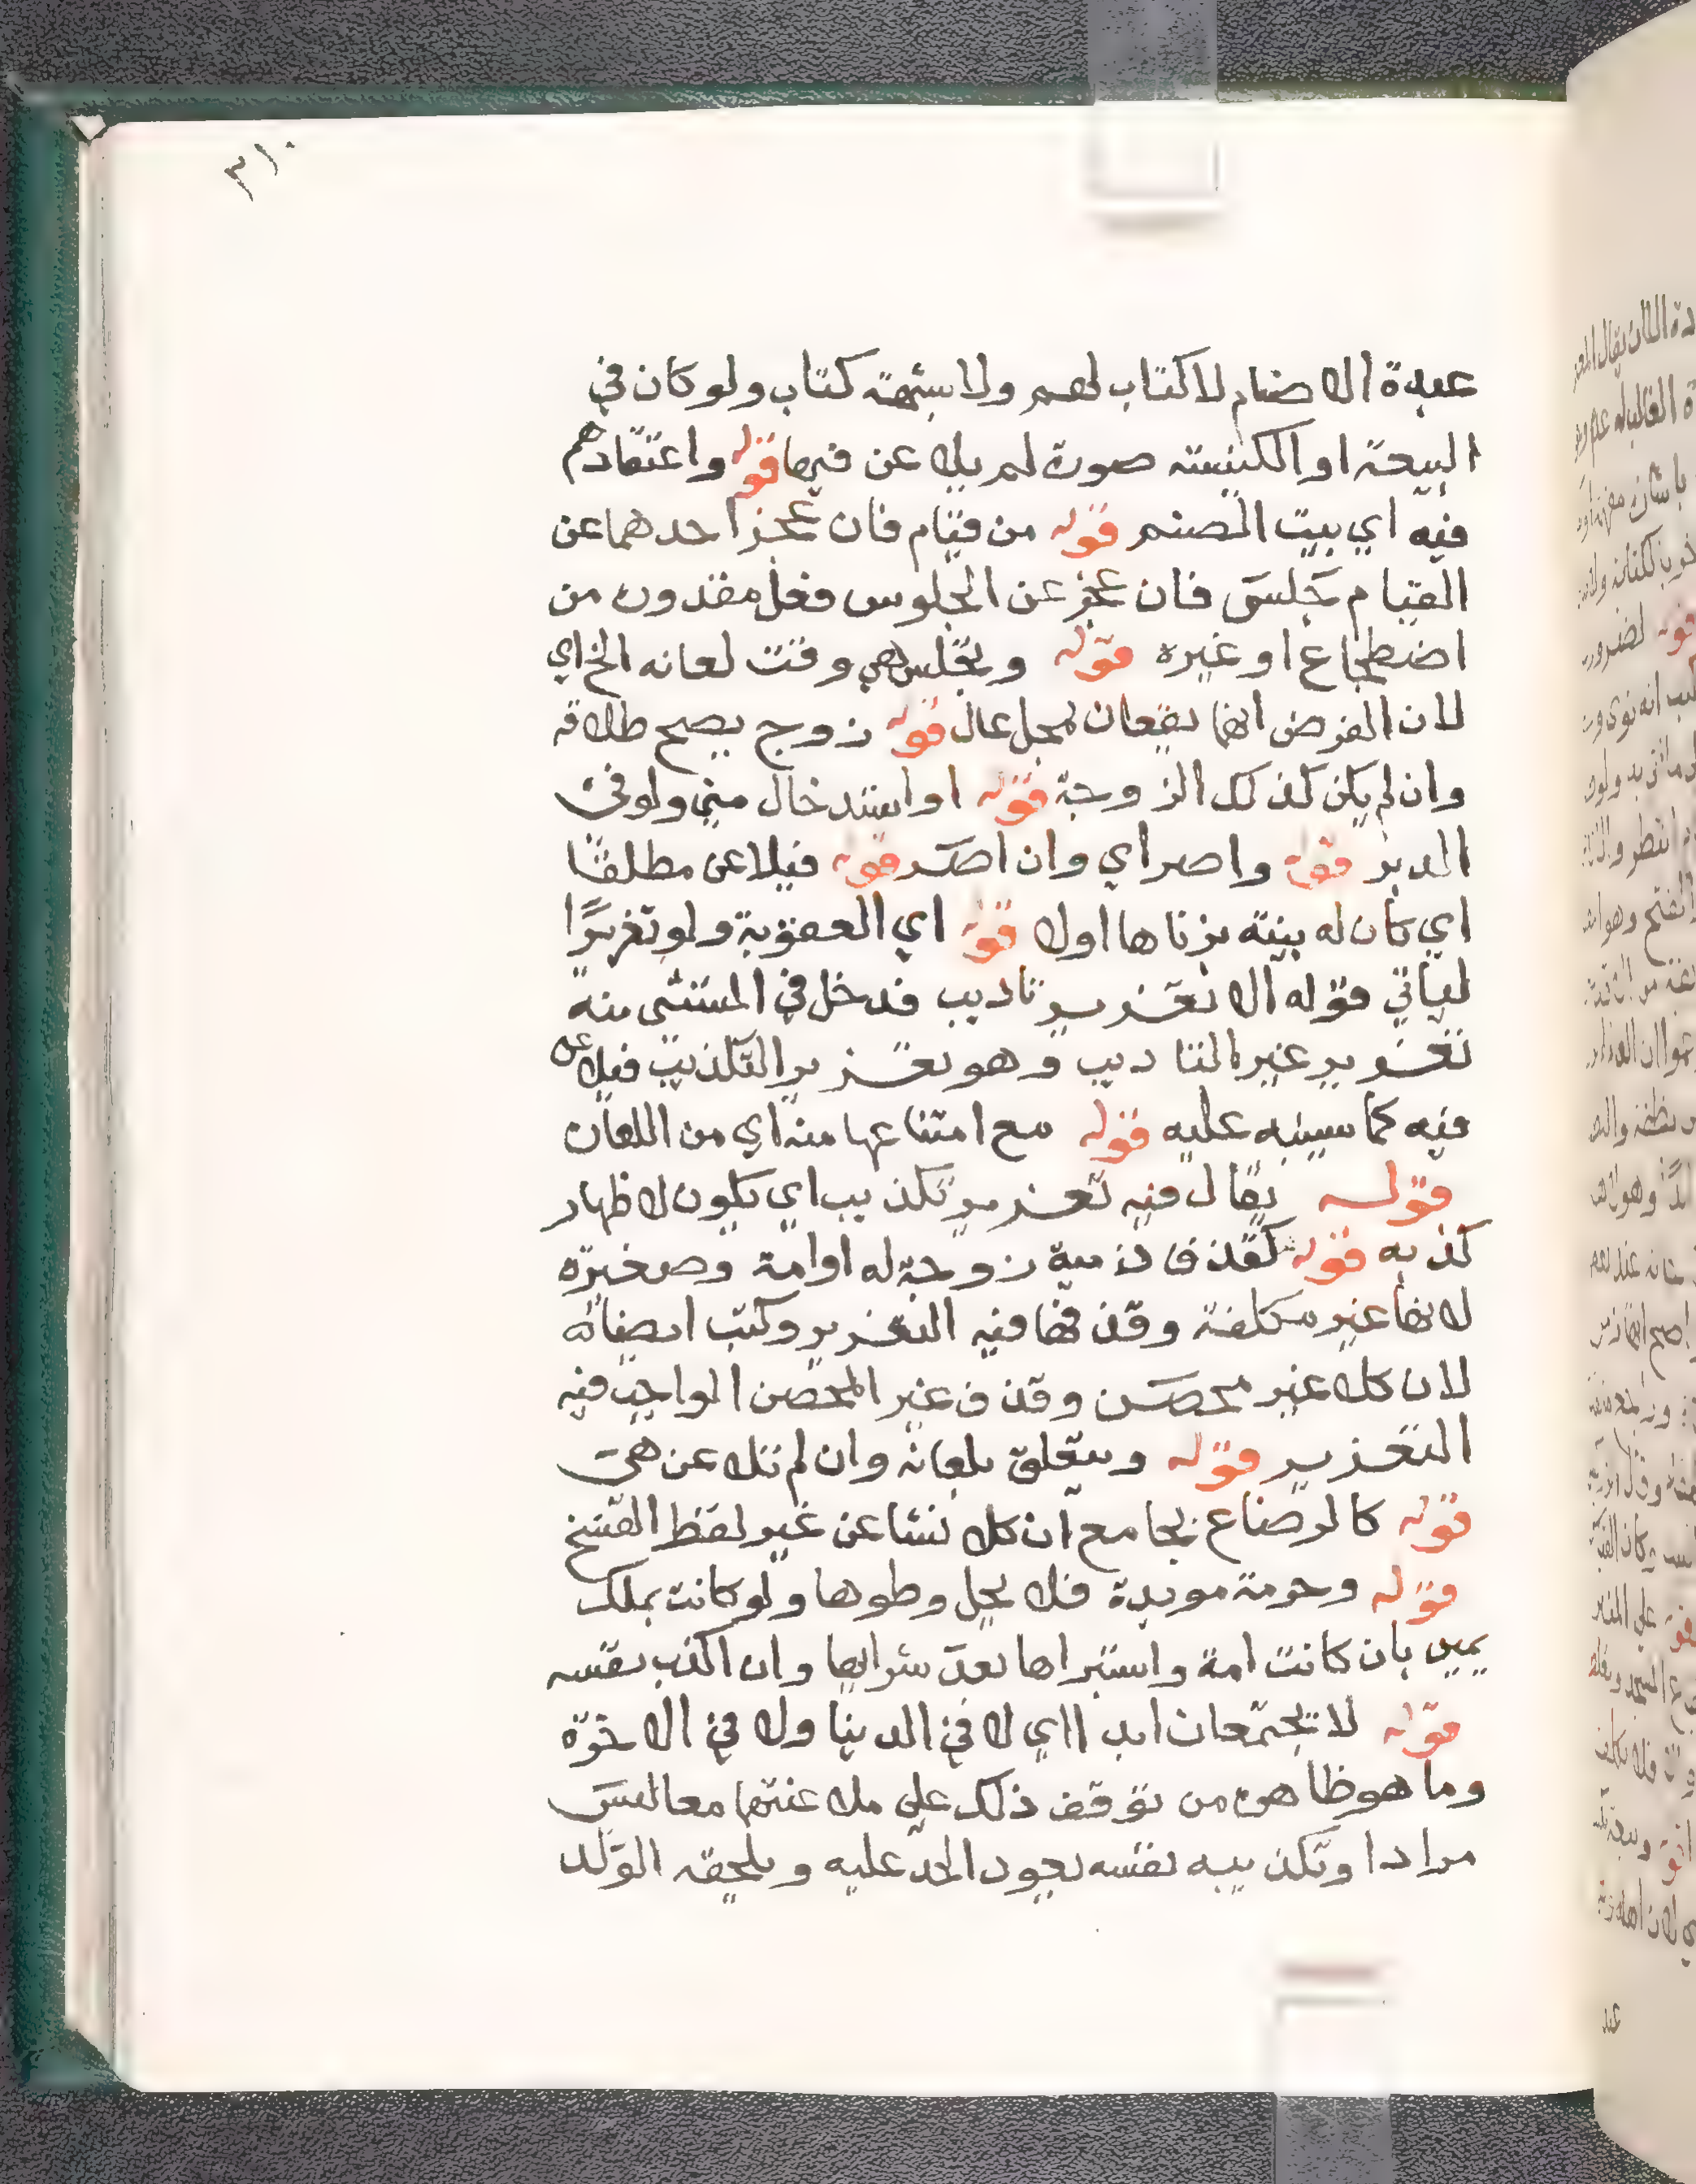 ٣١٠
عبدة الاصنام لا كتاب لهم ولا شبهة كتاب ولو كان في
البيعة او الكنيسة صورة لم يلاعن فيها قوله واعتقادهم
فيه اي بيت الصنم قوله من قيام فان عجز احدهما عن
القيام جلس فان عجز عن الجلوس فعل مقدوره من
اضطجاع او غيره قوله ويجلس هي وقت لعانه الخ اي
لان الغرض انهما يقعان لمحل عال قوله زوج يصح طلاقه
وان لم يكن كذلك الزوجة قوله او استدخال مني ولو في
الدبر قوله واصر اي وان اصر قوله فيلاعن مطلقا
اي كان له بينة بزناها اولا قوله اي العقوبة ولو تعزيرًا
لياتي قوله الا تعزير تاديب فدخل في المستثنى منه
تعزير غير التاديب وهو تعزير التكذيب فيلاعن
فيه كما سينبه عليه قوله مع امتناعها منه اي من اللعان
قوله يقال فيه تعزير تكذيب اي يكون لاظهار
كذبه قوله كقذف ذمية زوجة له او امة وصغيرة
لانها غير مكلفة وقذفها فيه التعزير وكتب ايضا
لان كلا غير محصن وقذف غير المحصن الواجب فيه
التعزير قوله ويتعلق بلعانه وان لم تلاعن هي
قوله كالرضاع بجامع ان كلا نشا عن غير لفظ الفسخ
قوله وحرمة موبدة فلا يحل وطوها ولو كانت بملك
يمين بان كانت امة واستبراها بعد شرايها وان اكذب نفسه
قوله لا يجتمعان ابدا اي لا في الدنيا ولا في الاخرة
وما هو ظاهره من توقف ذلك على ملاعنتهما معا ليس
مرادا وتكذيبه نفسه يعود الحد عليه ويلحقه الولد